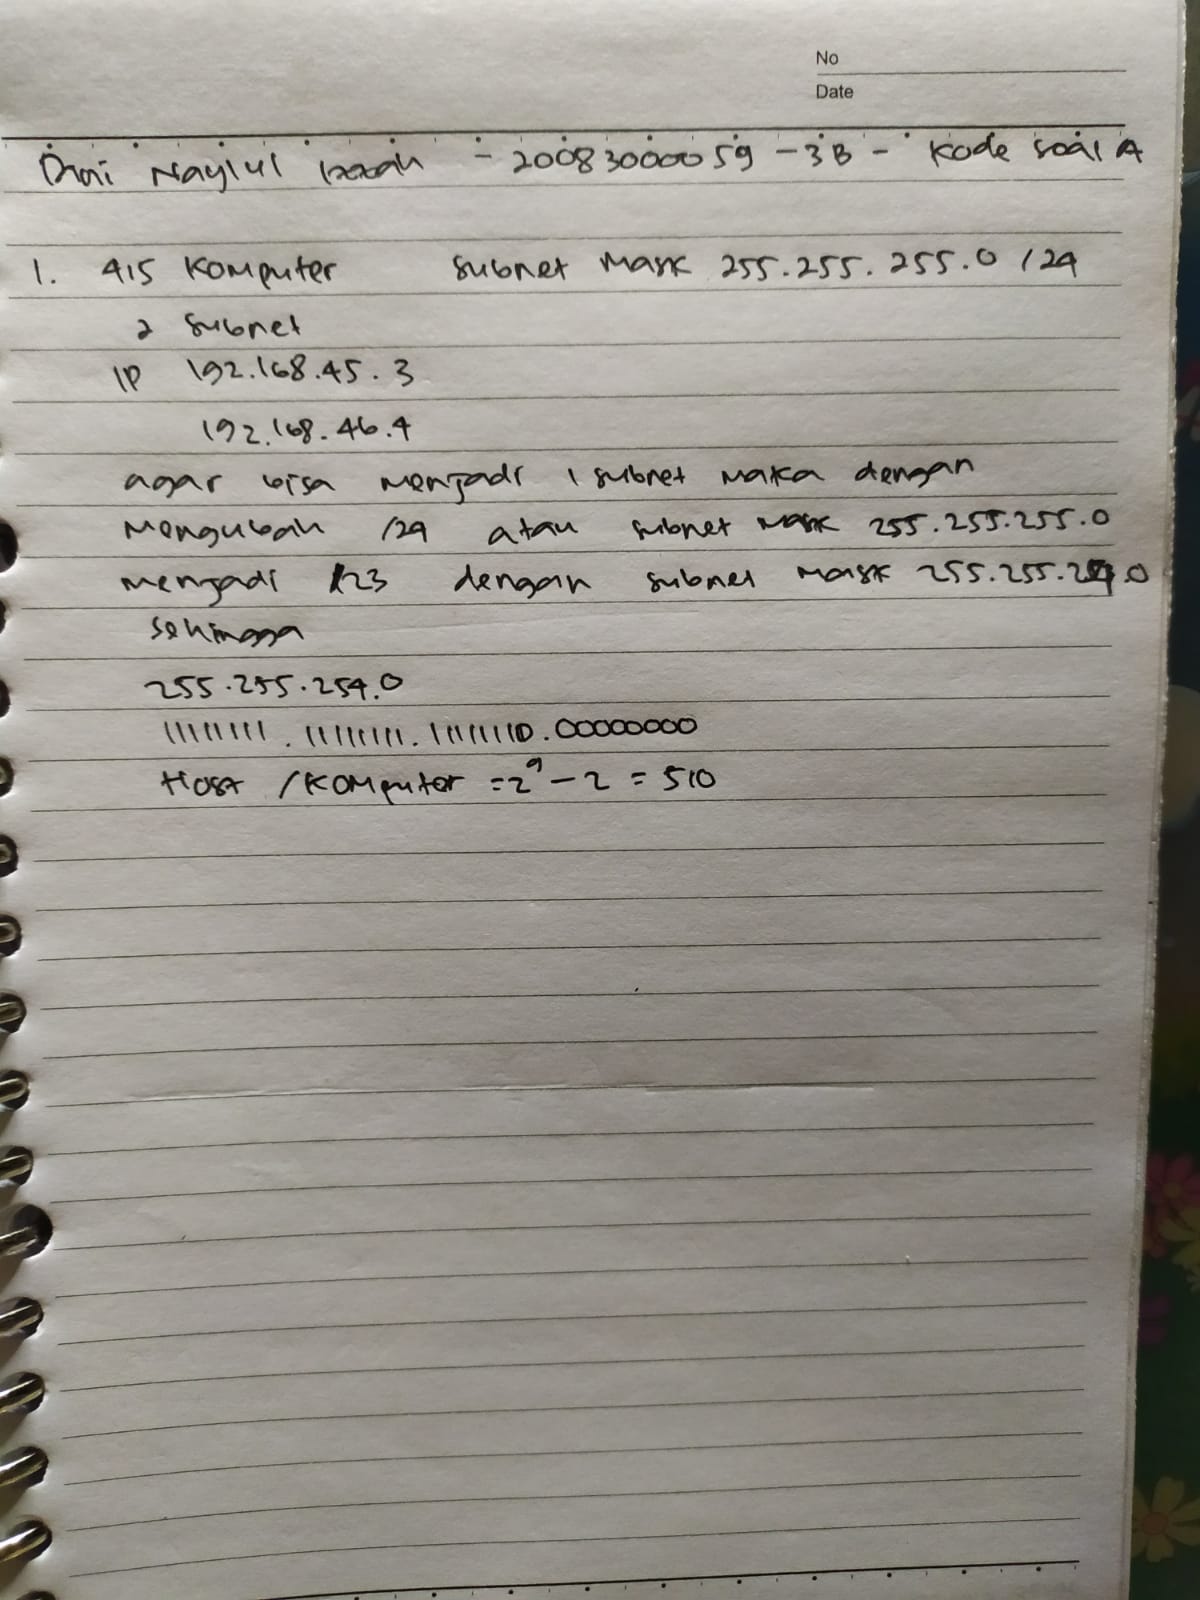 No
Date
Naylul Izzah - 20083000059 - 3B - Kode Soal A
1. 415 Komputer subnet mask 255.255.255.0 /24
2 subnet
IP 192.168.45.3
192.168.46.4
agar bisa menjadi 1 subnet maka dengan
mengubah /24 atau subnet mask 255.255.255.0
menjadi /23 dengan subnet mask 255.255.254.0
sehingga
255.255.254.0
11111111.11111111.11111110.00000000
Host /Komputer = 2⁹ - 2 = 510